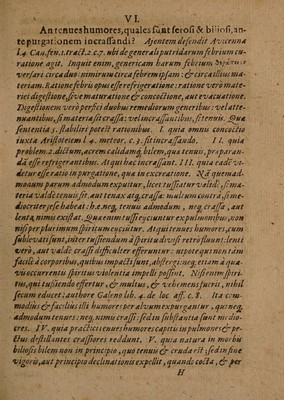 VI.
An tenues humores, quales sunt serosi & biliosi, an-
te purgationem incrassandi? Ajentem defendit Avicenna
l.4. Can. fen.1. tract.2. c.7. ubi de generali putridarum febrium cu-
ratione agit. Inquit enim, genericam harum febrium
versari circa duo: nimirum circa febrem ipsam: & circa illius ma-
teriam. Ratione febris opus esse refrigeratione: ratione verò mate-
riei digestione, sive maturatione & concoctione, aut evacuatione.
Digestionem verò perfici duobus remediorum generibus: vel atte-
nuantibus, si materia sit crassa: vel incrassantibus, si tenuis. Quæ
sententia 5. stabiliri potest rationibus. I. quia omnis concoctio
juxta Aristotelem l. 4. meteor. c. 3. sit incrassando. II. quia
problem. 2. dictum, acrem calidamq́; bilem, quæ tenuis, præparan-
dā esse refrigerantibus. Atqui hac incrassant. III. quia eadē vi-
detur esse ratio in purgatione, quæ in excreatione. Nā quemad-
modum parum admodum expuitur, licet tussiatur validè, si ma-
teria valdè tenuis sit aut tenax atq́; crassa: multum contrà, si me-
diocriter sese habeat: h.e. neq́; tenuis admodum, neq́; crassa, aut
lenta nimis existat. Quæ enim tussi ejiciuntur ex pulmonibus, non
nisi per plurimum spiritum ejiciuntur. Atqui tenues humores, cum
sublevati sunt, inter tussiendum à spiritu divisi retrò fluunt: lenti
verò, aut valdè crassi difficulter efferuntur: utpote qui non tàm
facilè à corporibus, quibus impacti sunt, abstergi: neq́; etiam à qua-
vis occurrentis spiritus violentia impelli possint. Nisi enim spiri-
tus, qui tussiendo effertur, & multus, & vehemens fuerit, nihil
secum educet, authore Galeno lib. 4. de loc. aff. c. 8. Ita com-
modius & facilius illi humores per alvum expurgantur, qui neq́;
admodum tenues: neq́; nimis crassi: sed in substantia sunt medio-
cres. IV. quia practici tenues humores capitis in pulmones & pe-
ctus destillantes crassiores reddunt. V. quia natura in morbis
biliosis bilem non in principio, quo tenuis & cruda est: sed in fine
vigoris, aut principio declinationis expellit, quando cocta, & per
H